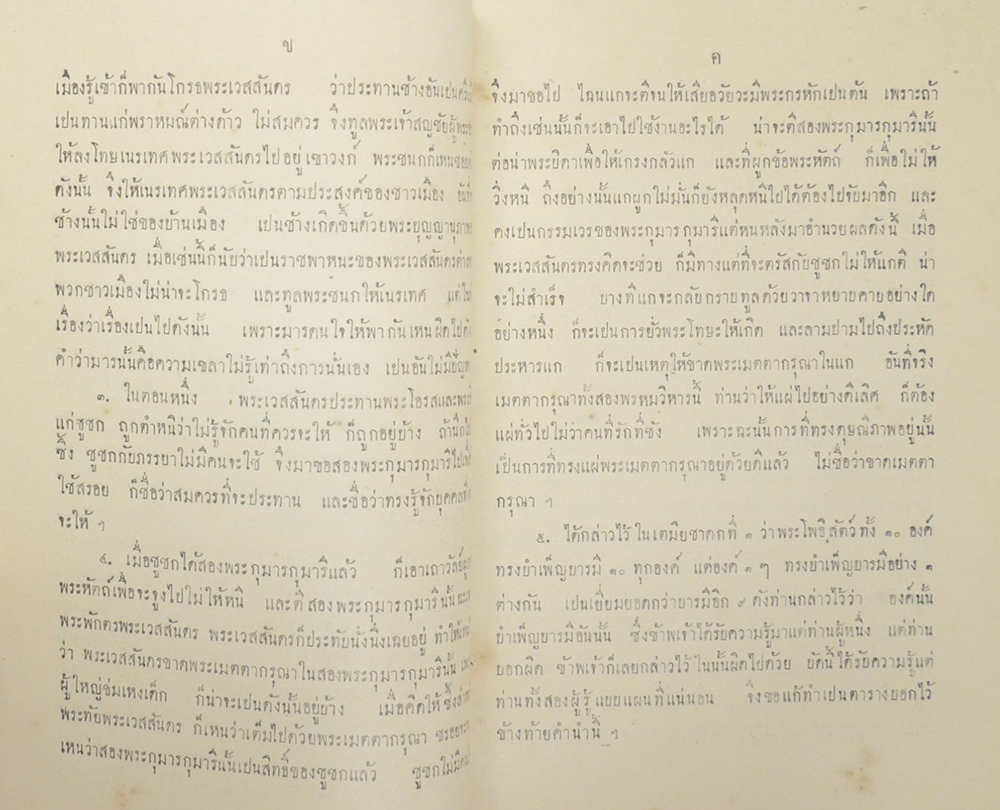 ข
เมืองรู้เข้าก็พากันโกรธพระเวสสันดร ว่าประทานช้างอันเปน
เปนทานแก่พราหมณ์ต่างด้าว ไม่สมควร จึงทูลพระเจ้าสญชัย
ให้ลงโทษเนรเทศพระเวสสันดรไปอยู่เขาวงก์ พระชนกก็เหน
ดังนั้น จึงให้เนรเทศพระเวสสันดรตามประสงค์ของชาวเมือง อันที่
ช้างนั้นไม่ใช่ของบ้านเมือง เปนช้างเกิดขึ้นด้วยพระบุญญานุภาพ
พระเวสสันดร เมื่อเช่นนี้ก็นับว่าเปนราชพาหนะของพระเวสสันดรต่างหาก
พวกชาวเมืองไม่น่าจะโกรธ และทูลพระชนกให้เนรเทศ แต่ใน
เรื่องว่าเรื่องเปนไปดังนั้น เพราะมารดนใจให้พากันเหนผิดไป
คำว่ามารนั้นคือความเขลาไม่รู้เท่าถึงการนั่นเอง เปนอันไม่มีปัญหา
๓. ในตอนหนึ่ง พระเวสสันดรประทานพระโอรสและพระ
แก่ชูชก ถูกตำหนิว่าไม่รู้จักคนที่ควรจะให้ ก็ถูกอยู่บ้าง ถ้านึก
ซึ้ง ชูชกกับภรรยาไม่มีคนจะใช้ จึงมาขอสองพระกุมารกุมารีไปเพื่อ
ใช้สรอย ก็ชื่อว่าสมควรที่จะประทาน และชื่อว่าทรงรู้จักบุคคลที่
จะให้ ฯ
๔. เมื่อชูชกได้สองพระกุมารกุมารีแล้ว ก็เอาเถาวัลย์ผูก
พระหัตถ์เพื่อจะจูงไปไม่ให้หนี และตีสองพระกุมารกุมารีนั้น
พระพักตรพระเวสสันดร พระเวสสันดรก็ประทับนั่งนิ่งเฉยอยู่ ทำให้
ว่า พระเวสสันดรขาดพระเมตตากรุณาในสองพระกุมารกุมารีนั้น
ผู้ใหญ่ข่มเหงเด็ก ก็น่าจะเปนดังนั้นอยู่บ้าง เมื่อคิดให้ซึ้ง
พระทัยพระเวสสันดร ก็เหนว่าเต็มไปด้วยพระเมตตากรุณา
เหนว่าสองพระกุมารกุมารีนั้นเปนสิทธิ์ของชูชกแล้ว ชูชกไม่มี
ค
จึงมาขอไป ไฉนแกจะตีจนให้เสียอวัยวะมีพระกรหักเปนต้น เพราะถ้า
ทำถึงเช่นนั้นก็จะเอาไปใช้งานอะไรได้ น่าจะตีสองพระกุมารกุมารีนั้น
ต่อน่าพระบิดาเพื่อให้เกรงกลัวแก และที่ผูกข้อพระหัตถ์ ก็เพื่อไม่ให้
วิ่งหนี ถึงอย่างนั้นแกผูกไม่มั่นก็ยังหลุดหนีไปได้ต้องไปจับมาอีก และ
คงเปนกรรมเวรของพระกุมารกุมารีแต่หนหลังมาอำนวยผลดังนี้ เมื่อ
พระเวสสันดรทรงคิดจะช่วย ก็มีทางแต่ที่จะตรัสกับชูชกไม่ให้แกตี น่า
จะไม่สำเร็จ บางทีแกจะกลับกรายทูลด้วยวาจาหยาบคายอย่างใด
อย่างหนึ่ง ก็จะเปนการยั่วพระโทษะให้เกิด และลามปามไปถึงประหัต
ประหารแก ก็จะเปนเหตุให้ขาดพระเมตตากรุณาในแก อันที่จริง
เมตตากรุณาทั้งสองพรหมวิหารนี้ ท่านว่าให้แผ่ไปอย่างดิเลิศ ก็ต้อง
แผ่ทั่วไปไม่ว่าคนที่รักที่ชัง เพราะฉะนั้นการที่ทรงดุษณีภาพอยู่นั้น
เป็นการที่ทรงแผ่พระเมตตากรุณาอยู่ด้วยดีแล้ว ไม่ชื่อว่าขาดเมตตา
กรุณา ฯ
๕. ได้กล่าวไว้ในเตมียชาดกที่ ๑ ว่าพระโพธิสัตว์ทั้ง ๑๐ องค์
ทรงบำเพ็ญบารมี ๑๐ ทุกองค์ แต่องค์ ๑ ๆ ทรงบำเพ็ญบารมีอย่าง ๑
ต่างกัน เปนเยี่ยมยอดกว่าบารมีอีก ๙ ดังท่านกล่าวไว้ว่า องค์นั้น
บำเพ็ญบารมีอันนั้น ซึ่งข้าพเจ้าได้รับความรู้มาแต่ท่านผู้หนึ่ง แต่ท่าน
บอกผิด ข้าพเจ้าก็เลยกล่าวไว้ในนั้นผิดไปด้วย บัดนี้ได้รับความรู้แต่
ท่านทั้งสองผู้รู้แบบแผนที่แน่นอน จึงขอแก้ทำเปนตารางบอกไว้
ข้างท้ายคำนำนี้ ฯ